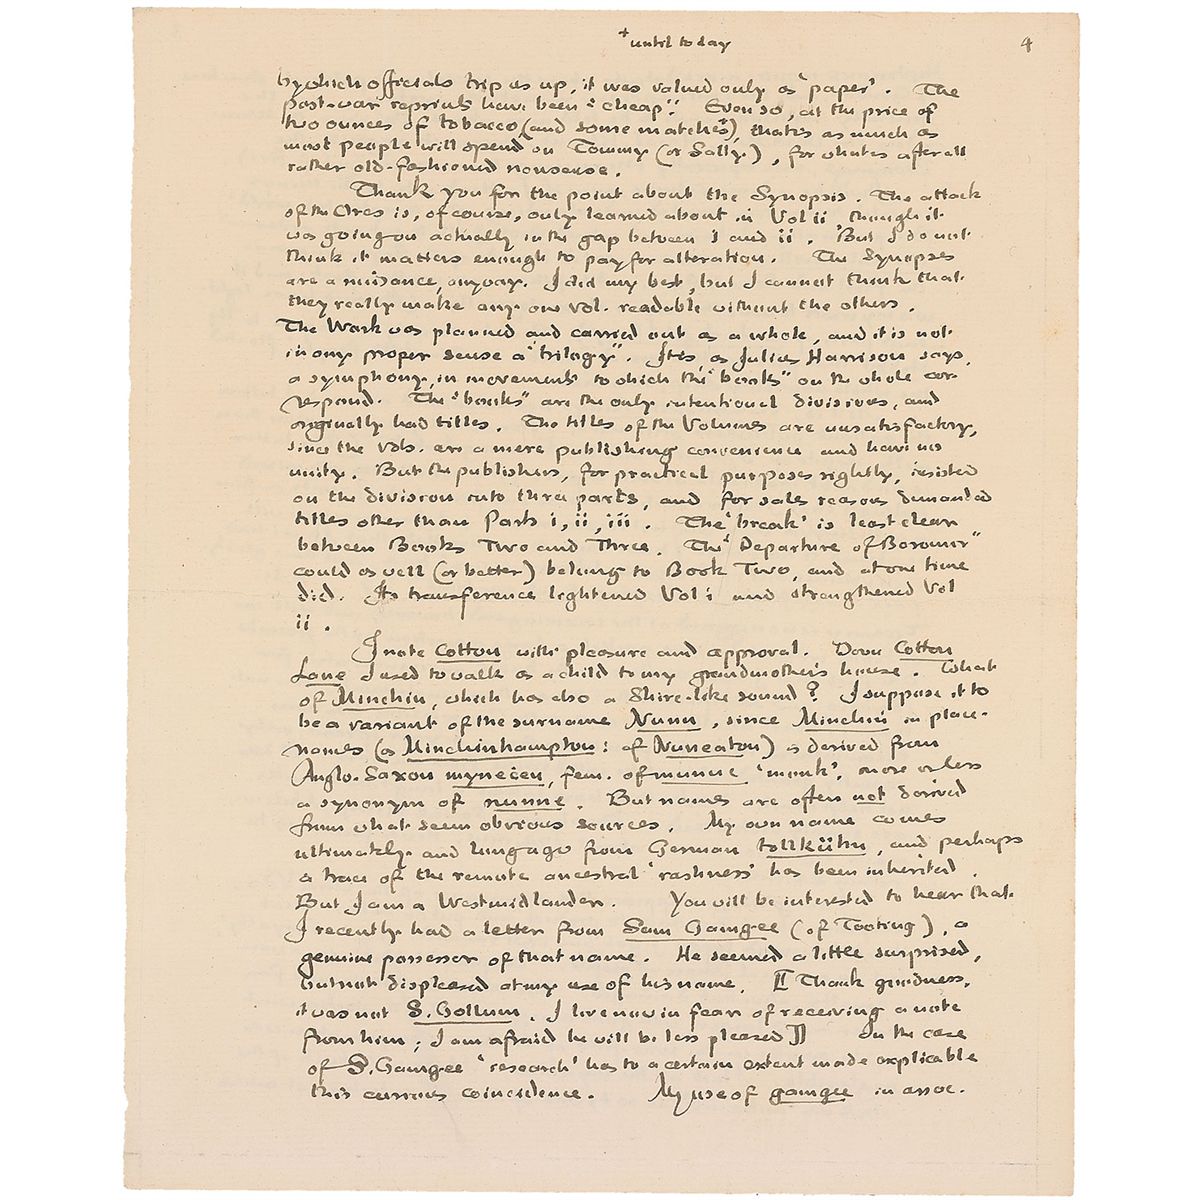 + until today
4
by which officials trip us up, it was valued only as 'paper'. The
post-war reprints have been "cheap"! Even so, at the price of
two ounces of tobacco, (and some matches+), that is as much as
most people will spend on Tommy (or Sally), for what is after all
rather old-fashioned nonsense.
Thank you for the point about the Synopsis. The attack
of the Orcs is, of course, only learned about in Vol ii, though it
was going on actually in the gap between i and ii. But I do not
think it matters enough to pay for alteration. The Synopses
are a nuisance, anyway. I did my best, but I cannot think that
they really make any one vol. readable without the others.
The Work was planned and carried out as a whole, and it is not
in any proper sense a "trilogy". It is, as Julius Harrison says,
a symphony, in movements to which the "books" on the whole cor-
respond. The "books" are the only intentional divisions, and
originally had titles. The titles of the Volumes are unsatisfactory,
since the vols. are a mere publishing convenience and have no
unity. But the publishers, for practical purposes rightly, insisted
on the division into three parts, and for sales reasons demanded
titles other than Parts i, ii, iii. The 'break' is least clear
between Books Two and Three. The "Departure of Boromir"
could as well (or better) belong to Book Two, and at one time
did. Its transference lightened Vol i and strengthened Vol
ii.
I note Cotton with pleasure and approval. Down Cotton
Lane I used to walk as a child to my grandmother's house. What
of Minchin, which has also a Shire-like sound? I suppose it to
be a variant of the surname Nunn, since Minchin in place-
names (as Minchinhampton: cf Nuneaton) is derived from
Anglo-Saxon myneċen, fem. of munuc 'monk', more or less
a synonym of nunne. But names are often not derived
from what seem obvious sources. My own name comes
ultimately and long ago from German tollkühn, and perhaps
a trace of the remote ancestral 'rashness' has been inherited.
But I am a Westmidlander. You will be interested to hear that
I recently had a letter from Sam Gamgee (of Tooting), a
genuine possessor of that name. He seemed a little surprised,
but not displeased at my use of his name. [[Thank goodness,
it was not S. Gollum. I live now in fear of receiving a note
from him; I am afraid he will be less pleased]] In the case
of S. Gamgee 'research' has to a certain extent made explicable
this curious coincidence. My use of gamgee in assoc.